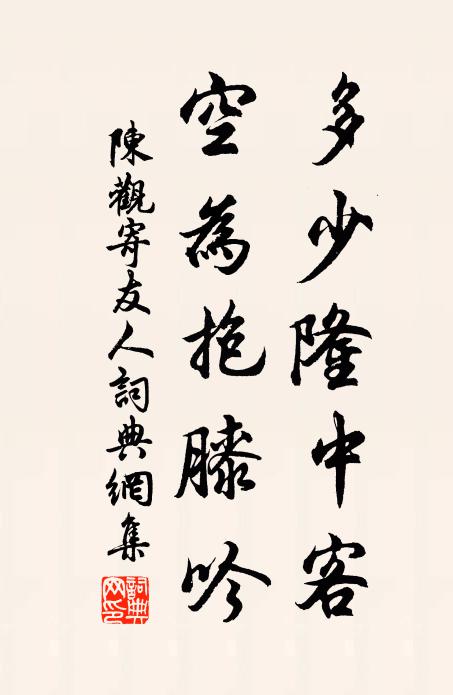 多少隆中客
空為抱膝吟
陳觀寄友人詞典網集
詞典網印